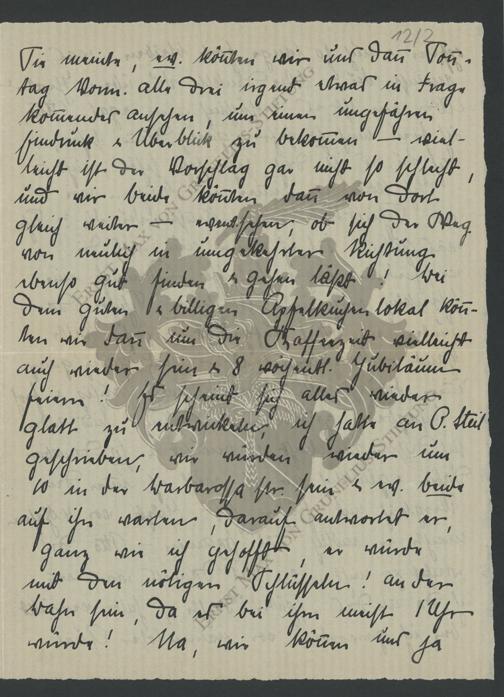 12/2
Sie meinte, ev. könnten wir uns dan̄ Son̄-
tag Vorm. alle drei irgend etwas in Frage
kommendes ansehen, um einen ungefähren
Eindruck & Überblick zu bekom̄en — viel-
leicht ist der Vorschlag gar nicht so schlecht,
und wir beide kön̄ten dan̄ von dort
gleich weiter — ob sich der Weg
von neulich in umgekehrter Richtung
ebenso gut finden & gehen läßt! Bei
dem guten & billigen Apfelkuchenlokal kön̄-
ten wir dan̄ um die Kaffeezeit vielleicht
auch wieder sein & 8 wöchentl. Jubiläum
feiern! Es scheint sich alles wieder
glatt zu entwickeln, ich hatte an P. Steil
geschrieben, wir würden wieder um
10 in der Barbarossa str. sein & ev. beide
auf ihn warten, darauf antwortet er,
ganz wie ich gehofft, er würde
mit den nötigen Schlüsseln! an der
Bahn sein, da es bei ihm meist 1 Uhr
würde! Na, wir kön̄en uns ja
ERNST MAX VON GRUNELIUS-STIFTUNG
ERNST MAX VON GRUNELIUS-STIFTUNG